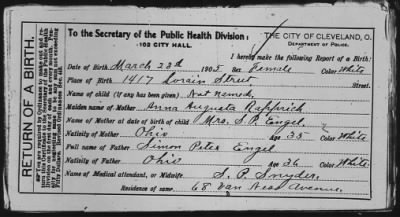 To the Secretary of the Public Health Division:
102 CITY HALL.
THE CITY OF CLEVELAND, O.
DEPARTMENT OF POLICE.
I hereby make the following Report of a Birth:
Date of Birth March 23th 1905 Sex Female Color White
Place of Birth 1417 Lorain Street Street.
Name of child (if any has been given) Not named.
Maiden name of Mother Anna Augusta Rapprich
Name of Mother at date of birth of child Mrs. S. P. Engel
Nativity of Mother Ohio Age 35 Color White
Full name of Father Simon Peter Engel
Nativity of Father Ohio Age 36 Color White.
Name of Medical attendant, or Midwife S. P. Snyder.
Residence of same 68 Van Ness Avenue.
RETURN OF A BIRTH.